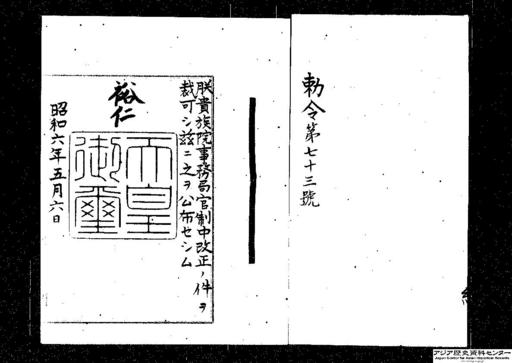 勅令第七十三號
朕貴族院事務局官制中改正ノ件ヲ
裁可シ玆ニ之ヲ公布セシム
裕仁
天皇
御璽
昭和六年五月六日
アジア歴史資料センター
Japan Center for Asian Historical Records